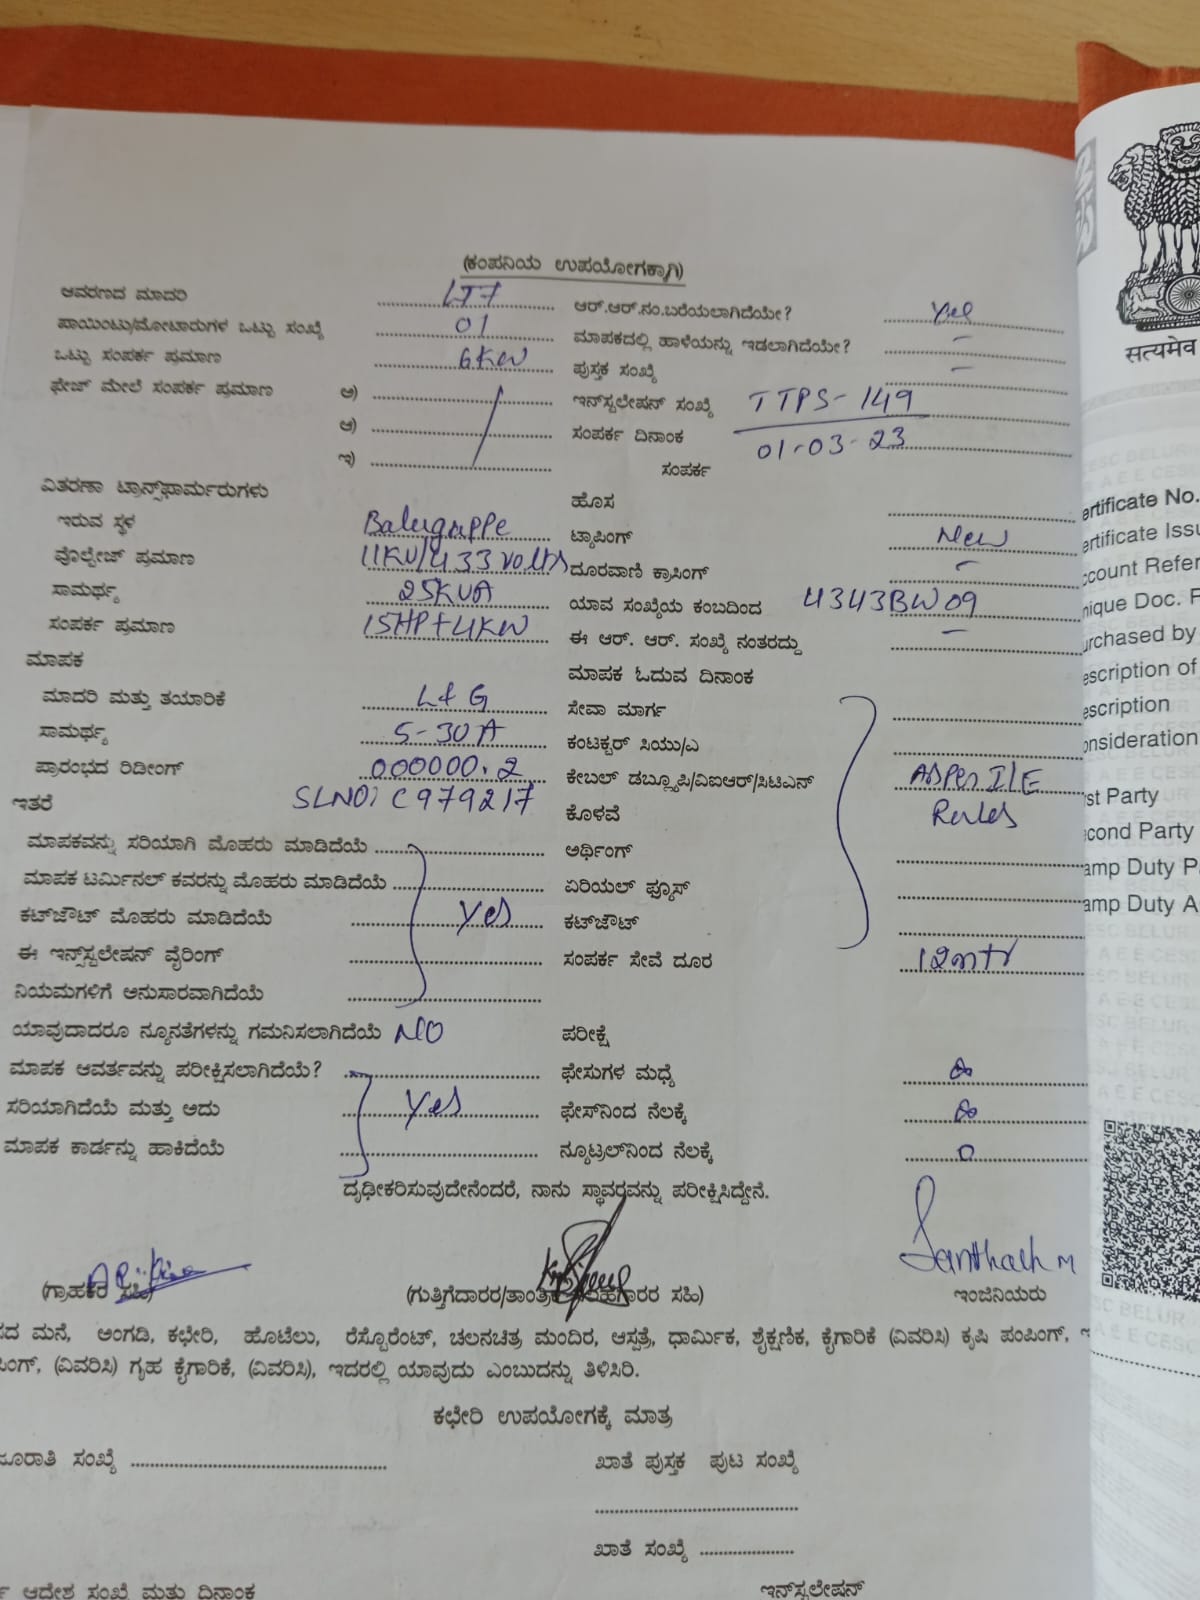 (ಕಂಪನಿಯ ಉಪಯೋಗಕ್ಕಾಗಿ)
ಆವರಣದ ಮಾದರಿ LT7 ಆರ್.ಆರ್.ನಂ.ಬರೆಯಲಾಗಿದೆಯೇ? Yes
ಪಾಯಿಂಟು/ಮೋಟಾರುಗಳ ಒಟ್ಟು ಸಂಖ್ಯೆ 01 ಮಾಪಕದಲ್ಲಿ ಹಾಳೆಯನ್ನು ಇಡಲಾಗಿದೆಯೇ? -
ಒಟ್ಟು ಸಂಪರ್ಕ ಪ್ರಮಾಣ 6KW ಪುಸ್ತಕ ಸಂಖ್ಯೆ -
ಫೇಜ್ ಮೇಲೆ ಸಂಪರ್ಕ ಪ್ರಮಾಣ ಅ) ಇನ್‌ಸ್ಟಲೇಷನ್ ಸಂಖ್ಯೆ TTPS-149
ಆ) ಸಂಪರ್ಕ ದಿನಾಂಕ 01-03-23
ಇ) ಸಂಪರ್ಕ
ವಿತರಣಾ ಟ್ರಾನ್ಸ್‌ಫಾರ್ಮರುಗಳು ಹೊಸ
ಇರುವ ಸ್ಥಳ Baluguppe ಟ್ಯಾಪಿಂಗ್ New
ವೊಲ್ಟೇಜ್ ಪ್ರಮಾಣ 11KV/433 volts ದೂರವಾಣಿ ಕ್ರಾಸಿಂಗ್ -
ಸಾಮರ್ಥ್ಯ 25KVA ಯಾವ ಸಂಖ್ಯೆಯ ಕಂಬದಿಂದ 4343BW09
ಸಂಪರ್ಕ ಪ್ರಮಾಣ 15HP+4KW ಈ ಆರ್. ಆರ್. ಸಂಖ್ಯೆ ನಂತರದ್ದು -
ಮಾಪಕ ಮಾಪಕ ಓದುವ ದಿನಾಂಕ
ಮಾದರಿ ಮತ್ತು ತಯಾರಿಕೆ L+G ಸೇವಾ ಮಾರ್ಗ
ಸಾಮರ್ಥ್ಯ 5-30A ಕಂಟಕ್ಟರ್ ಸಿಯು/ಎ
ಪ್ರಾರಂಭದ ರಿಡೀಂಗ್ 000000.2 ಕೇಬಲ್ ಡಬ್ಲ್ಯೂಪಿ/ವಿಐಆರ್/ಸಿಟಿಎನ್ As per I/E
ಇತರೆ SLNO: C979217 ಕೊಳವೆ Rules
ಮಾಪಕವನ್ನು ಸರಿಯಾಗಿ ಮೊಹರು ಮಾಡಿದೆಯೆ ಅರ್ಥಿಂಗ್
ಮಾಪಕ ಟರ್ಮಿನಲ್ ಕವರನ್ನು ಮೊಹರು ಮಾಡಿದೆಯೆ ಏರಿಯಲ್ ಫ್ಯೂಸ್
ಕಟ್‌ಔಟ್ ಮೊಹರು ಮಾಡಿದೆಯೆ Yes ಕಟ್‌ಔಟ್
ಈ ಇನ್ಸ್‌ಸ್ಟಲೇಷನ್ ವೈರಿಂಗ್ ಸಂಪರ್ಕ ಸೇವೆ ದೂರ 12mtr
ನಿಯಮಗಳಿಗೆ ಅನುಸಾರವಾಗಿದೆಯೆ
ಯಾವುದಾದರೂ ನ್ಯೂನತೆಗಳನ್ನು ಗಮನಿಸಲಾಗಿದೆಯೆ NO ಪರೀಕ್ಷೆ
ಮಾಪಕ ಆವರ್ತವನ್ನು ಪರೀಕ್ಷಿಸಲಾಗಿದೆಯೆ? ಫೇಸುಗಳ ಮಧ್ಯೆ ∞
ಸರಿಯಾಗಿದೆಯೆ ಮತ್ತು ಅದು Yes ಫೇಸ್‌ನಿಂದ ನೆಲಕ್ಕೆ ∞
ಮಾಪಕ ಕಾರ್ಡನ್ನು ಹಾಕಿದೆಯೆ ನ್ಯೂಟ್ರಲ್‌ನಿಂದ ನೆಲಕ್ಕೆ 0
ದೃಢೀಕರಿಸುವುದೇನೆಂದರೆ, ನಾನು ಸ್ಥಾವರವನ್ನು ಪರೀಕ್ಷಿಸಿದ್ದೇನೆ.
Santhosh M
(ಗ್ರಾಹಕರ ಸಹಿ) (ಗುತ್ತಿಗೆದಾರರ/ ಸಹಿ) ಇಂಜಿನಿಯರು
ಮನೆ, ಅಂಗಡಿ, ಕಛೇರಿ, ಹೊಟೆಲು, ರೆಸ್ಟೊರೆಂಟ್, ಚಲನಚಿತ್ರ ಮಂದಿರ, ಆಸ್ಪತ್ರೆ, ಧಾರ್ಮಿಕ, ಶೈಕ್ಷಣಿಕ, ಕೈಗಾರಿಕೆ (ವಿವರಿಸಿ) ಕೃಷಿ ಪಂಪಿಂಗ್,
(ವಿವರಿಸಿ) ಗೃಹ ಕೈಗಾರಿಕೆ, (ವಿವರಿಸಿ), ಇದರಲ್ಲಿ ಯಾವುದು ಎಂಬುದನ್ನು ತಿಳಿಸಿರಿ.
ಕಛೇರಿ ಉಪಯೋಗಕ್ಕೆ ಮಾತ್ರ
ಸಂಖ್ಯೆ ಖಾತೆ ಪುಸ್ತಕ ಪುಟ ಸಂಖ್ಯೆ
ಖಾತೆ ಸಂಖ್ಯೆ
ಆದೇಶ ಸಂಖ್ಯೆ ಮತ್ತು ದಿನಾಂಕ ಇನ್‌ಸ್ಟಲೇಷನ್
सत्यमेव
ertificate No.
ertificate Issu
ccount Refer
nique Doc. F
urchased by
escription of
escription
onsideration
st Party
cond Party
amp Duty P
amp Duty A